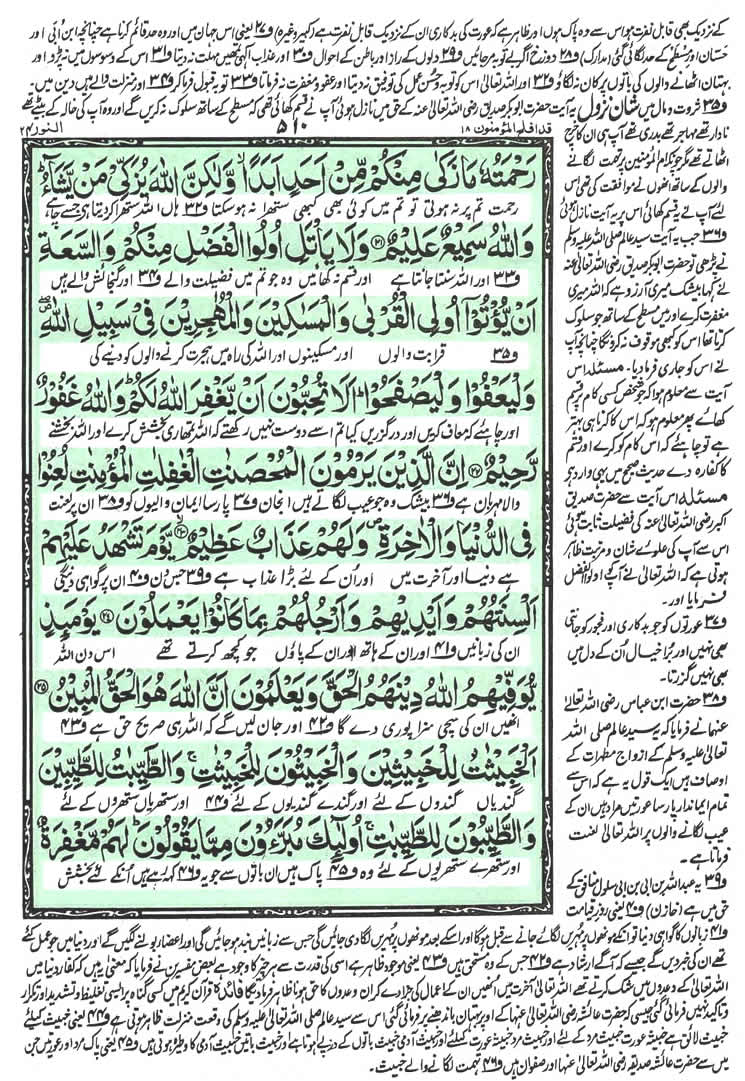 کے نزدیک بھی قابل نفرت ہو اس سے وہ پاک ہوں اور ظاہر ہے کہ عورت کی بدکاری ان کے نزدیک قابل نفرت ہے (کبیر وغیرہ) و۲۷ یعنی اس جہان میں اور وہ حد قائم کرنا ہے چنانچہ ابن ابی اور
حسّان اور مسطح کے حد لگائی گئی (مدارک) و۲۸ دوزخ اگر بے توبہ مر جائیں و۲۹ دلوں کے راز اور باطن کے احوال و۳۰ اور عذاب الٰہی تمہیں مہلت نہ دیتا و۳۱ اس کے وسوسوں میں نہ پڑو اور
بہتان اٹھانے والوں کی باتوں پر کان نہ لگاؤ و۳۲ اور اللہ تعالیٰ اس کو توبہ و حسن عمل کی توفیق نہ دیتا اور عفو و مغفرت نہ فرماتا و۳۳ توبہ قبول فرما کر و۳۴ اور منزلت والے ہیں دین میں۔
و۳۵ ثروت و مال میں شان نزول یہ آیت حضرت ابوبکر صدیق رضی اللہ تعالیٰ عنہ کے حق میں نازل ہوئی آپ نے قسم کھائی تھی کہ مسطح کے ساتھ سلوک نہ کریں گے اور وہ آپ کی خالہ کے بیٹے تھے
النور ۲۴
۵۱۰
قد افلح المؤمنون ۱۸
رَحْمَتُهٗ مَا زَكٰى مِنْكُمْ مِّنْ اَحَدٍ اَبَدًا وَّلٰكِنَّ اللّٰهَ يُزَكِّيْ مَنْ يَّشَآءُ
رحمت تم پر نہ ہوتی تو تم میں کوئی بھی کبھی ستھرا نہ ہو سکتا و۳۲ ہاں اللہ ستھرا کر دیتا ہے جسے چاہے
وَاللّٰهُ سَمِيْعٌ عَلِيْمٌ ۝۲۱ وَلَا يَاْتَلِ اُولُوا الْفَضْلِ مِنْكُمْ وَالسَّعَةِ
و۳۳ اور اللہ سنتا جانتا ہے اور قسم نہ کھائیں وہ جو تم میں فضیلت والے و۳۴ اور گنجائش والے ہیں
اَنْ يُّؤْتُوْٓا اُولِي الْقُرْبٰى وَالْمَسٰكِيْنَ وَالْمُهٰجِرِيْنَ فِيْ سَبِيْلِ اللّٰهِ
و۳۵ قرابت والوں اور مسکینوں اور اللہ کی راہ میں ہجرت کرنے والوں کو دینے کی
وَلْيَعْفُوْا وَلْيَصْفَحُوْا اَلَا تُحِبُّوْنَ اَنْ يَّغْفِرَ اللّٰهُ لَكُمْ وَاللّٰهُ غَفُوْرٌ
اور چاہئے کہ معاف کریں اور درگزریں کیا تم اسے دوست نہیں رکھتے کہ اللہ تمہاری بخشش کرے اور اللہ بخشنے
رَّحِيْمٌ ۝۲۲ اِنَّ الَّذِيْنَ يَرْمُوْنَ الْمُحْصَنٰتِ الْغٰفِلٰتِ الْمُؤْمِنٰتِ لُعِنُوْا
والا مہربان ہے و۳۶ بیشک وہ جو عیب لگاتے ہیں انجان و۳۷ پارسا ایمان والیوں کو و۳۸ ان پر لعنت
فِي الدُّنْيَا وَالْاٰخِرَةِ وَلَهُمْ عَذَابٌ عَظِيْمٌ ۝۲۳ يَّوْمَ تَشْهَدُ عَلَيْهِمْ
ہے دنیا اور آخرت میں اور اُن کے لئے بڑا عذاب ہے و۳۹ جس دن و۴۰ ان پر گواہی دیں گی
اَلْسِنَتُهُمْ وَاَيْدِيْهِمْ وَاَرْجُلُهُمْ بِمَا كَانُوْا يَعْمَلُوْنَ ۝۲۴ يَوْمَئِذٍ
ان کی زبانیں و۴۱ اور ان کے ہاتھ اور ان کے پاؤں جو کچھ کرتے تھے اس دن اللہ
يُّوَفِّيْهِمُ اللّٰهُ دِيْنَهُمُ الْحَقَّ وَيَعْلَمُوْنَ اَنَّ اللّٰهَ هُوَ الْحَقُّ الْمُبِيْنُ ۝۲۵
انھیں ان کی سچی سزا پوری دے گا و۴۲ اور جان لیں گے کہ اللہ ہی صریح حق ہے و۴۳
اَلْخَبِيْثٰتُ لِلْخَبِيْثِيْنَ وَالْخَبِيْثُوْنَ لِلْخَبِيْثٰتِ وَالطَّيِّبٰتُ لِلطَّيِّبِيْنَ
گندیاں گندوں کے لئے اور گندے گندیوں کے لئے و۴۴ اور ستھریاں ستھروں کے لئے
وَالطَّيِّبُوْنَ لِلطَّيِّبٰتِ اُولٰٓئِكَ مُبَرَّءُوْنَ مِمَّا يَقُوْلُوْنَ لَهُمْ مَّغْفِرَةٌ
اور ستھرے ستھریوں کے لئے وہ و۴۵ پاک ہیں ان باتوں سے جو یہ و۴۶ کہہ رہے ہیں اُن کے لئے بخشش
نادار تھے مہاجر تھے بدری تھے آپ ہی ان کا خرچ
اٹھاتے تھے مگر چونکہ ام المؤمنین پر تہمت لگانے
والوں کے ساتھ انھوں نے موافقت کی تھی اس
لئے آپ نے یہ قسم کھائی اس پر یہ آیت نازل ہوئی
و۳۶ جب یہ آیت سید عالم صلی اللہ علیہ وسلم
نے پڑھی تو حضرت ابوبکر صدیق رضی اللہ تعالیٰ عنہ
نے کہا بیشک میری آرزو ہے کہ اللہ میری
مغفرت کرے اور میں مسطح کے ساتھ جو سلوک
کرتا تھا اس کو کبھی موقوف نہ کروں گا چنانچہ آپ
نے اس کو جاری فرما دیا۔ مسئلہ اس
آیت سے معلوم ہوا کہ جو شخص کسی کام پر قسم
کھائے پھر معلوم ہو کہ اس کا کرنا ہی بہتر
ہے تو چاہئے کہ اس کام کو کرے اور قسم
کا کفارہ دے حدیث صحیح میں یہی وارد ہے
مسئلہ اس آیت سے حضرت صدیق
اکبر رضی اللہ تعالیٰ عنہ کی فضیلت ثابت ہوئی
اس سے آپ کی علوئے شان و مرتبت ظاہر
ہوتی ہے کہ اللہ تعالیٰ نے آپ کو اولوا الفضل
فرمایا اور۔
و۳۷ عورتوں کو جو بدکاری اور فجور کو جانتی
بھی نہیں اور برا خیال اُن کے دل میں
بھی نہیں گزرتا۔
و۳۸ حضرت ابن عباس رضی اللہ تعالیٰ
عنہما نے فرمایا کہ یہ سید عالم صلی اللہ
تعالیٰ علیہ وسلم کے ازواج مطہرات کے
اوصاف ہیں ایک قول یہ ہے کہ اس سے
تمام ایماندار پارسا عورتیں مراد ہیں ان کے
عیب لگانے والوں پر اللہ تعالیٰ لعنت
فرماتا ہے۔
و۳۹ یہ عبداللہ بن ابی بن سلول منافق کے
حق میں ہے (خازن) و۴۰ یعنی روز قیامت
و۴۱ زبانوں کا گواہی دینا تو انکے مونھوں پر مہریں لگائے جانے سے قبل ہوگا اور اسکے بعد مونھوں پر مہریں لگا دی جائیں گی جس سے زبانیں بند ہو جائیں گی اور اعضا بولنے لگیں گے اور دنیا میں جو عمل کئے
تھے ان کی خبر دیں گے جیسے کہ آگے ارشاد ہے و۴۲ جس کے وہ مستحق ہیں و۴۳ یعنی موجود ظاہر ہے اسی کی قدرت سے ہر چیز کا وجود ہے بعض مفسرین نے فرمایا کہ معنی یہ ہیں کہ کفار دنیا میں
اللہ تعالیٰ کے وعدوں میں شک کرتے تھے اللہ تعالیٰ آخرت میں انھیں ان کے اعمال کی جزا دے کر ان وعدوں کا حق ہونا ظاہر فرما دیگا فائدہ قرآن کریم میں کسی گناہ پر ایسی تغلیظ و تشدید اور تکرار
و تاکید نہیں فرمائی گئی جیسی کہ حضرت عائشہ رضی اللہ تعالیٰ عنہا کے اوپر بہتان باندھنے پر فرمائی گئی اس سے سید عالم صلی اللہ تعالیٰ علیہ وسلم کی رفعت منزلت ظاہر ہوتی ہے و۴۴ یعنی خبیث کیلئے
خبیث لائق ہے خبیثہ عورت خبیث مرد کے لئے اور خبیث مرد خبیثہ عورت کیلئے اور خبیث آدمی خبیث باتوں کے درپے ہوتا ہے اور خبیث باتیں خبیث آدمی کا وطیرہ ہوتی ہیں و۴۵ یعنی پاک مرد اور عورتیں جن
میں سے حضرت عائشہ صدیقہ رضی اللہ تعالیٰ عنہا اور صفوان ہیں و۴۶ تہمت لگانے والے خبیث۔